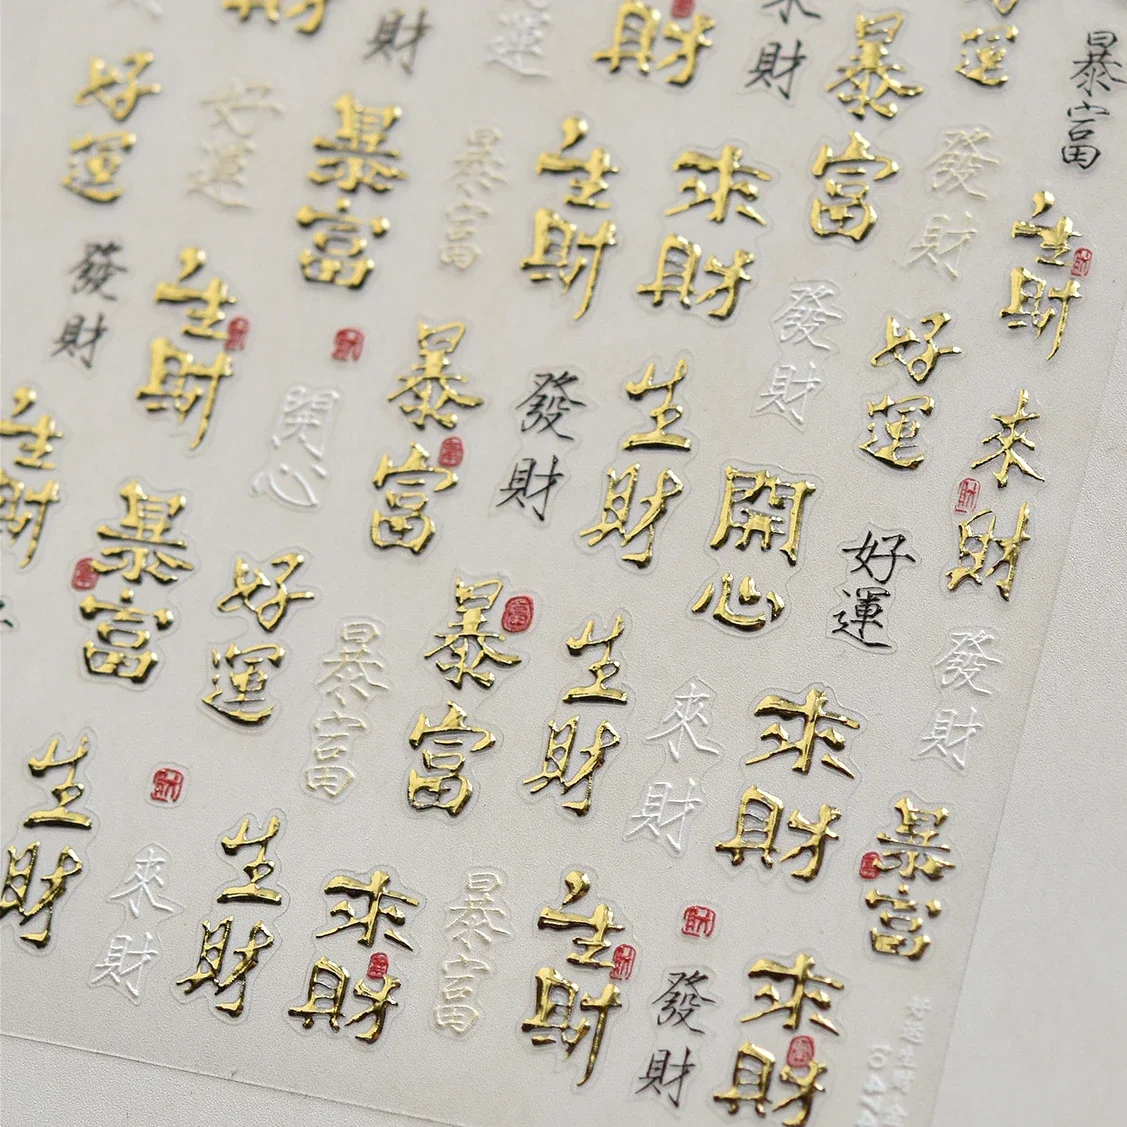 財
財
來財
暴富
運
暴富
好運
好運
暴富
暴富
生財
來財
富
發財
生財
財
發財
生財
財
財
開心
暴富
富
發財
生財
發財
好運
來財
財
生財
暴富
財
好運
暴富
暴富
富
生財
開心
好運
發財
生財
財
來財
生財
來財
來財
暴富
財
來財
暴富
生財
財
財
發財
來財
富